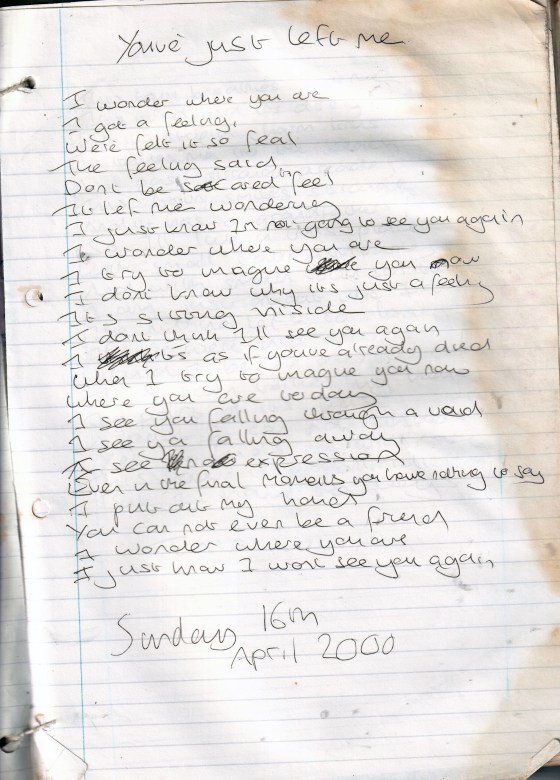 Youve just left me
I wonder where you are
I got a feeling.
We're felt it so feal
The feeling said
Dont be scared feel
It left me wondering
I just know Im not going to see you again
I wonder where you are
I try to imagine you now
I dont know why its just a feeling
Its strong niside
I dont think I'll see you again
I its as if you've already died
When I try to imagine you now
Where you are today
I see you falling through a void
I see ya falling away
I see expression
Even in the final moments you have nothing to say
I put out my hand
You can not even be a friend
I wonder where you are
I just know I wont see you again
Sunday 16th
April 2000